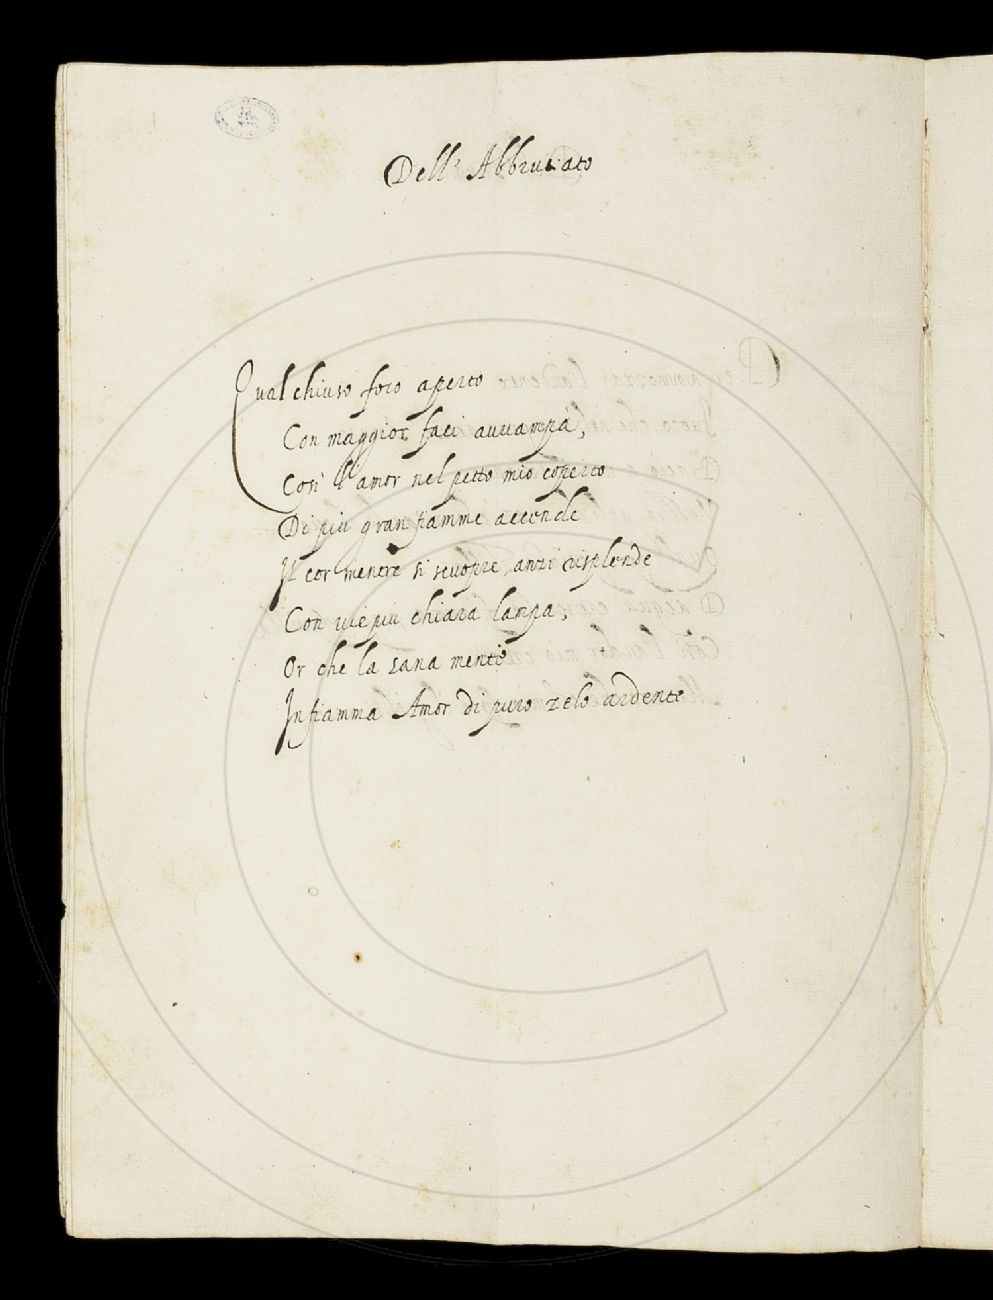 Dell' Abbruciato
Qual chiuso foco aperto
Con maggior faci avvampa,
Così l'amor nel petto mio coperto
Di più gran fiamme accende
Il cor mentre si scuopre, anzi risplende
Con vie più chiara lampa,
Or che la sana mente
Infiamma Amor di puro zelo ardente